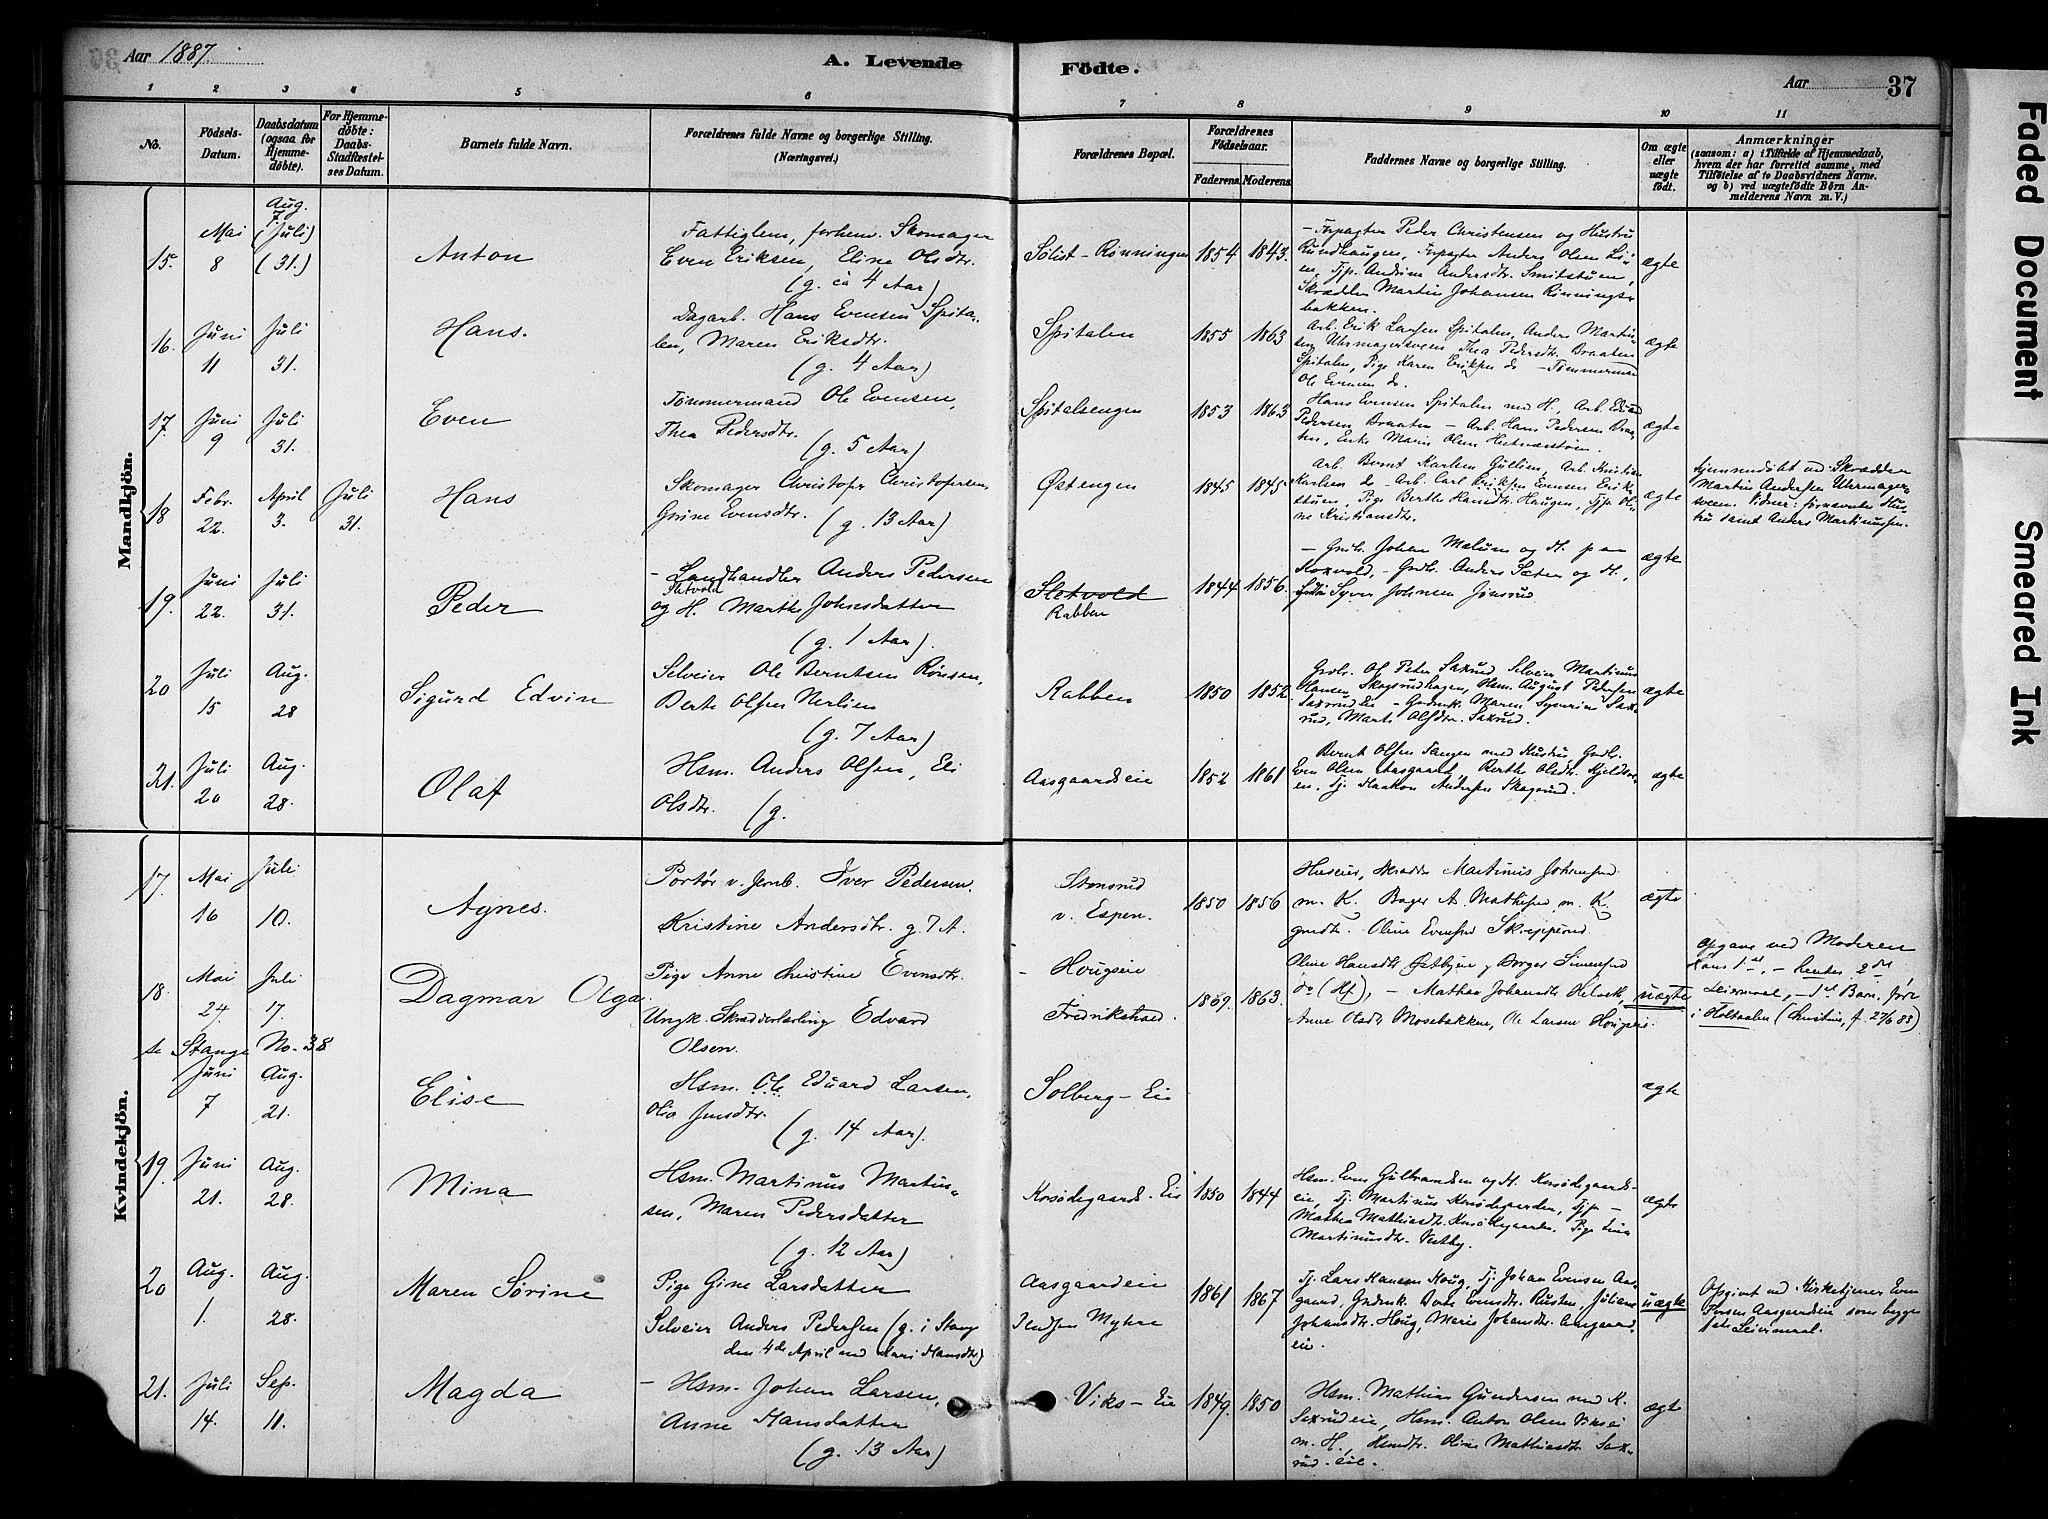 Aar 1887.
A. Levende Födte.
Aar 37
1 2 3 4 5 6 7 8 9 10 11
No.
Födsels-Datum.
Daabsdatum (ogsaa for Hjemmedöbte).
For Hjemmedöbte: Daabs-Stadfæstelses Datum.
Barnets fulde Navn.
Forældrenes fulde Navne og borgerlige Stilling.
(Næringsvei.)
Forældrenes Bopæl.
Forældrenes Födselsaar.
Faderens. Moderens.
Faddernes Navne og borgerlige Stilling.
Om ægte eller uægte födt.
Anmærkninger
(saasom: a) i Tilfælde af Hjemmedaab, hvem der har forrettet samme, med Tilföielse af to Daabsvidners Navne. og b) ved uægtefödte Börn Anmelderens Navn m. V.)
Mandkjön.
15. Mai 8 Aug. 7 (i Juli) (31.)
Anton
Fattiglem, forhen. Skomager
Even Eriksen, Eline Olsdtr.
(g. ca 4 Aar)
Sölist-Rønningen 1854 1843.
Forpagter Peder Christensen og Hustru
Rundhaugen, Forpagter Anders Olsen
Andersdtr. Smitstuen,
Skrædder Martin Johansen Rönnings-
bakken.
ægte
16. Juni 11 Juli 31.
Hans.
Dagarb. Hans Evensen Spita-
len, Maren Eriksdtr.
(g. 4 Aar)
Spitalen 1855 1863
Arb. Erik Larsen Spitalen, Anders Martin-
sen Uhrmagersveen Thea Pedersdtr. Braaten
Spitalen, Pige Karen Eriksen do - Tømmermand
Ole Evensen do.
ægte
17. Juni 9 Juli 31.
Even
Tömmermand Ole Evensen,
Thea Pedersdtr.
(g. 5 Aar)
Spitalsengen 1853 1863
Hans Evensen Spitalen med H., Arb. Eduard
Pedersen Braaten - Arb. Hans Pedersen Braa-
ten, Enke Marie Olsen
ægte
18 Febr. 22. April 3. Juli 31.
Hans
Skomager Christofer Christofersen,
Grine Evensdtr. (g. 13 Aar)
Østengen 1845 1845
Arb. Bernt Karlsen Gullien, Arb. Kristian
Karlsen do - Arb. Carl Eriksen Evensen Erik-
stuen, Pige Berthe Hansdtr. Haugen, Tjp. Oli-
ne Kristiansdtr.
ægte
hjemmedöbt ved Skrædder
Martin Andersen Uhrmager-
sveen. Vidner: förnævntes Hus-
tru samt Anders Martinussen.
19. Juni 22. Juli 31.
Peder
- Landhandler Anders Pedersen
Sletvold
og H. Marthe Johnsdatter
(g. 1 Aar).
Sletvold
Rabben
1844 1856.
- Grdb. Johan Mælum og H. paa
Stoxvold, - Grdb. Anders Sæter og H.,
Syver Johnsen Jønsrud
ægte
20 Juli 15 Aug. 28
Sigurd Edvin
Selveier Ole Berntsen Rönsen,
Berte Olsen Nerlien
(g. 7 Aar)
Rabben 1850 1852.
Grdb. Ol Peter Saxrud, Selveier Martinus
Hansen Skogsrudhagen, Hsm. August Pedersen
Saxrudeie - Grdmk. Maren Syverine Sax-
rud, Marte Olsdtr. Saxrud.
ægte
21. Juli 20 Aug. 28.
Olaf
Hsm. Anders Olsen, Eli
Olsdtr. (g.
Aasgaardseie 1852 1861
Bernt Olsen Tangen med Hustru, Grdb.
Even Olsen Aasgaard, Berthe Olsdtr.
Tj. Haakon Andersen Skogsrud.
ægte
Kvindekjön.
17. Mai 16 Juli 10.
Agnes.
Portör v. Jernb. Iver Pedersen.
Kristine Andersdtr. g. 7 A.
Stensrud
v. Espen. 1850 1856
Huseier, Skrædder Martinus Johansen
m. K. Bager A. Mathisen m. K
Oline Evensen Skrepperud.
ægte
18. Mai 24. Juli 17.
Dagmar Olga.
Pige Anne Christine Evensdtr.
Ungk. Skrædderlærling Edvard
Olsen.
- Hougseie
Fredrikstad. 1869. 1863.
Oline Hansdtr Østbyeie, Borger Simensen
do (Hf), - Mathea Johansdtr
Anne Olsdtr Mosebakken, Ole Larsen Hougseie.
uægte
Opgave ved Moderen
Hans 1ste, - hendes 2det
Leiermaal, - 1ste Barn, født
i Holtaalen (Kristine, f. 27/6 83)
se Stange No. 38
Juni 7 Aug. 21.
Elise
Hsm. Ole Eduard Larsen,
Olia Jensdtr.
(g. 14 Aar).
Solberg-Eie
ægte
19. Juni 21. Aug. 28.
Mina
Hsm. Martinus Martin-
sen, Maren Pedersdatter
(g. 12 Aar)
Korsödegaards-Eie 1850 1844
Hsm. Even Gulbrandsen og H. Korsödegaards-
eie, Tj. Martinus Korsödegaarden, Tjp -
Mathea Mathisdtr. Korsödegaarden, Pige
Martinusdtr. Vestby.
ægte
20 Aug. 1. Aug. 28.
Maren Sørine
Pige Gine Larsdatter
Selveier Anders Pedersen (g. i Stange
den 4de April med Kari Hansdtr)
Aasgaardeie
Myhre 1861 1867
Tj. Lars Hansen Houg, Tj. Johan Evensen Aas-
gaard, Grdmk. Berte Evensdtr. Rusten, Juliane
Johansdtr. Houg, Marie Johansdtr. Aasgaard-
eie.
uægte
Opgivet ved Kirketjener Even
Iversen Aasgaardeie som begges
1ste Leiermaal.
21. Juli 14. Sep. 11.
Magda
- Hsm. Johan Larsen,
Anne Hansdatter
(g. 13 Aar)
Viks-Eie 1849. 1850
Hsm. Mathias Gundersen med K.
Saxrudeie, Hsm. Anton Olsen Vikseie
m. H., Hsmdtr. Oline Mathiasdtr Sax-
rud-eie.
ægte
Faded Document
Smeared Ink